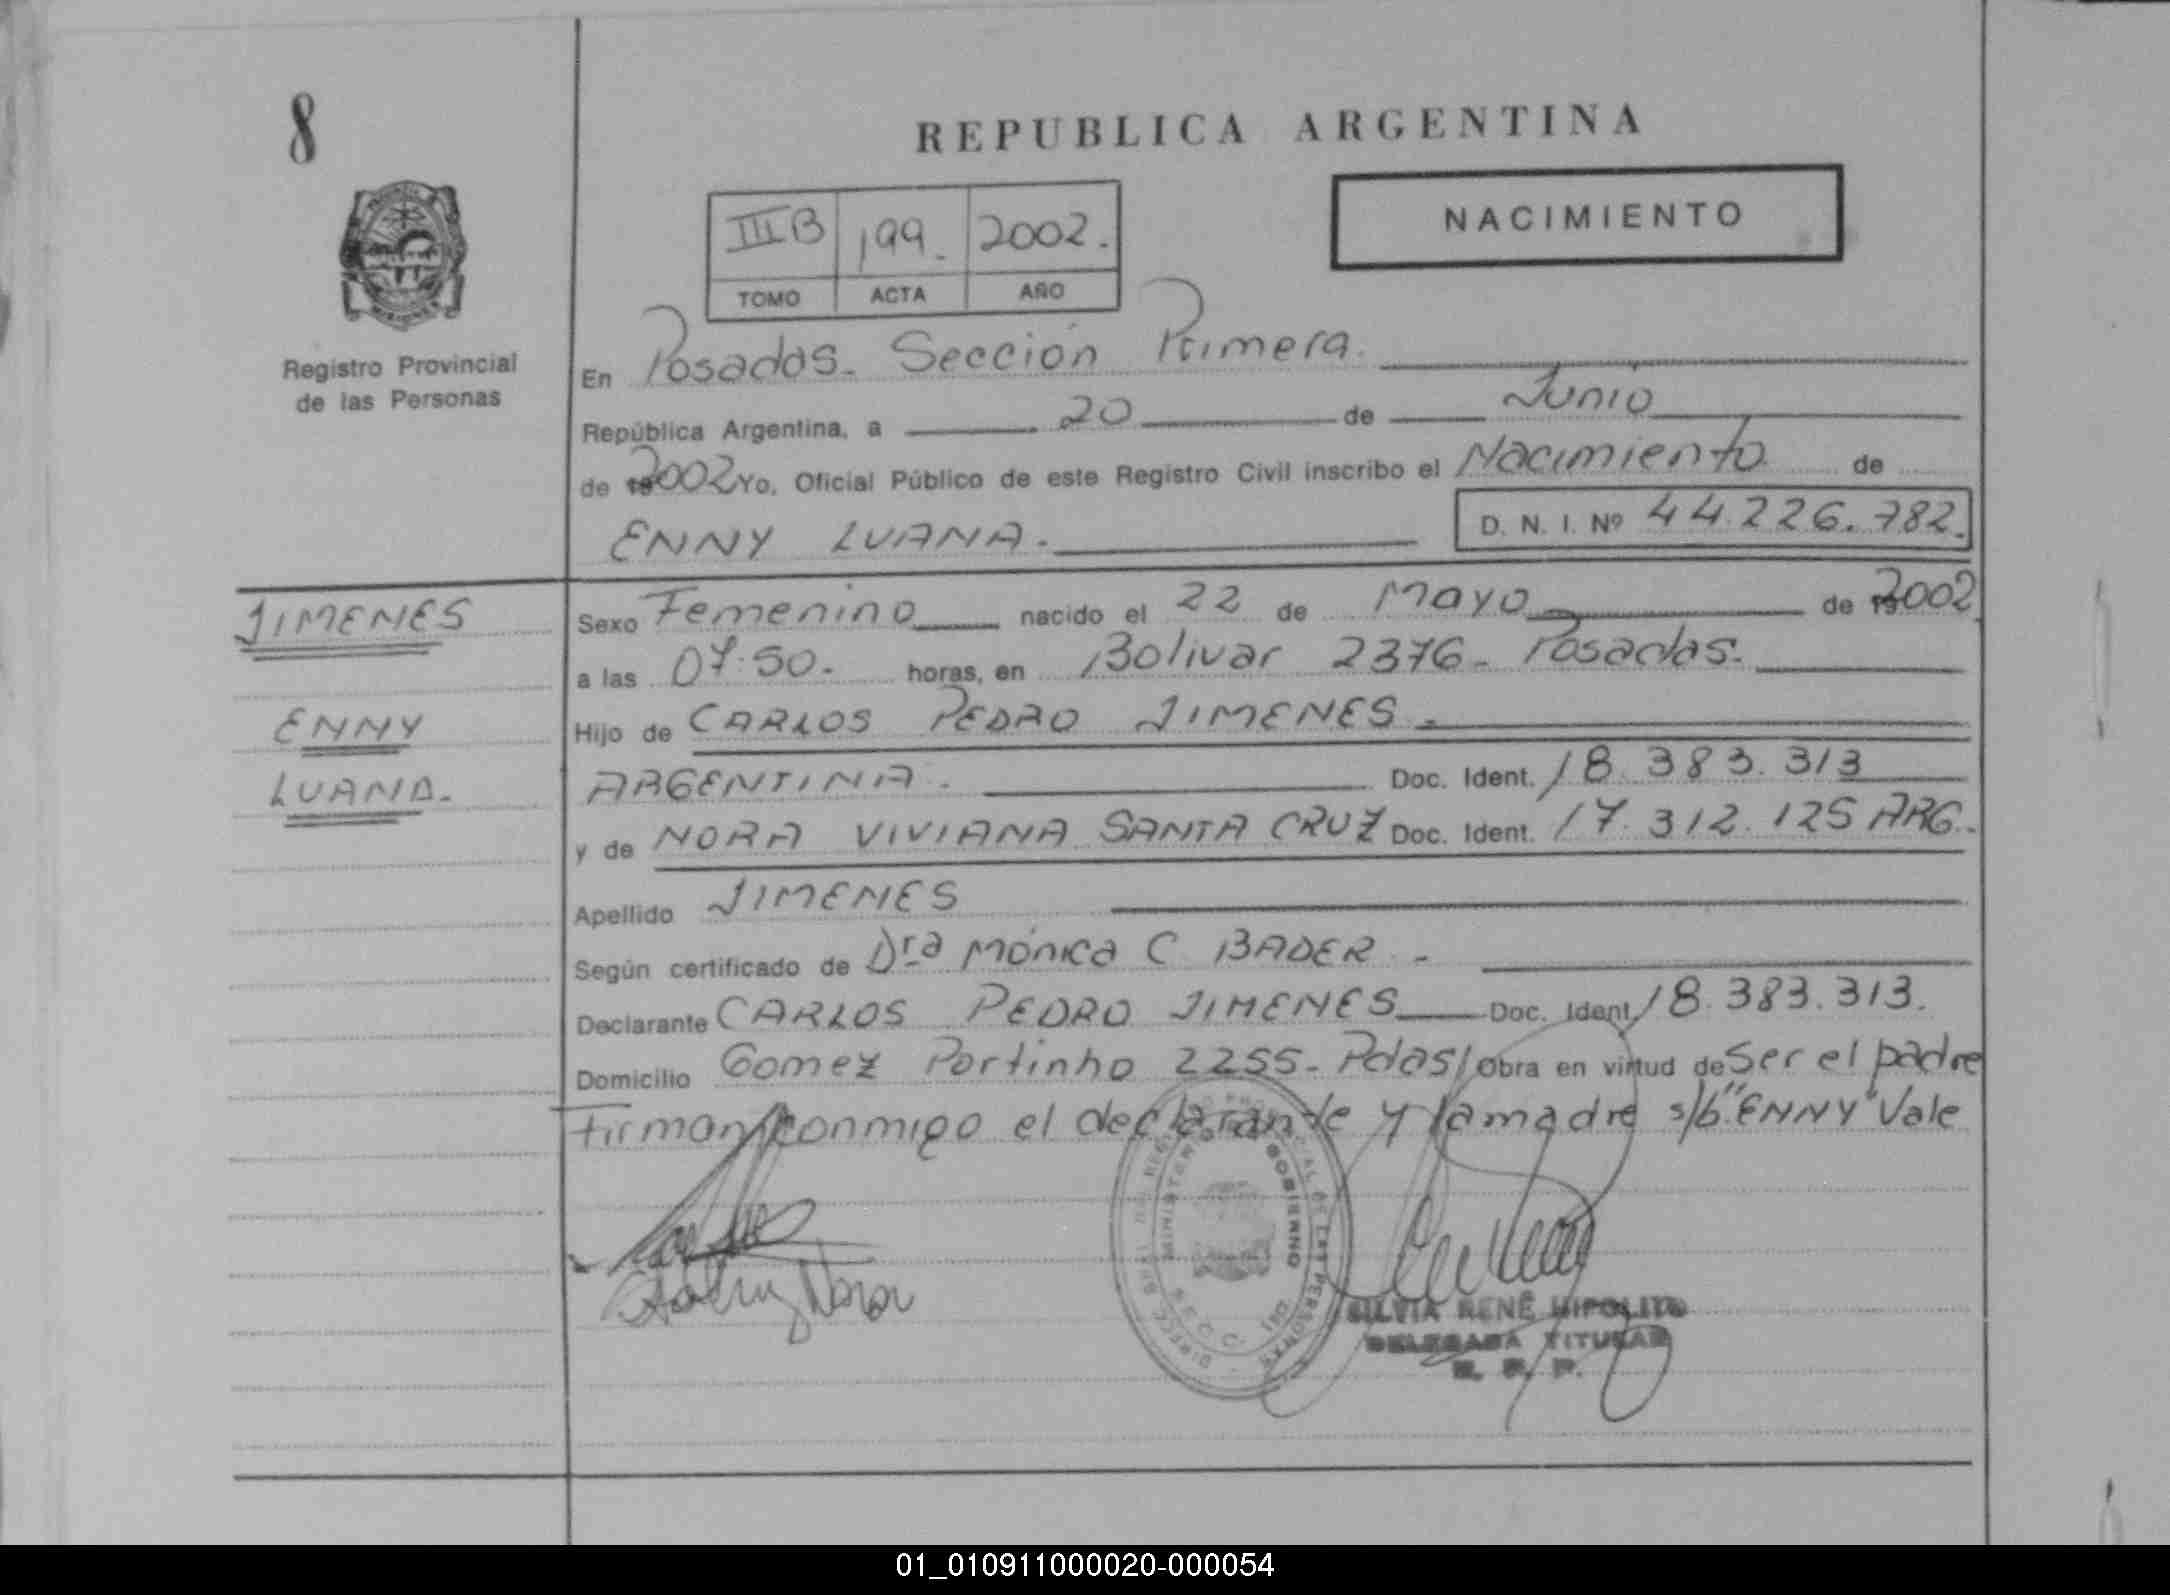 8
REPUBLICA ARGENTINA
NACIMIENTO
IIIB 199. 2002.
TOMO ACTA AÑO
Registro Provincial
de las Personas
En Posadas. Sección Primera.
República Argentina, a 20 de Junio
de 2002 Yo, Oficial Público de este Registro Civil inscribo el Nacimiento de
ENNY LUANA. D. N. I. Nº 44.226.782.
JIMENES
ENNY
LUANA.
Sexo Femenino nacido el 22 de Mayo de 2002
a las 07:50. horas, en Bolivar 2376. Posadas.
Hijo de CARLOS PEDRO JIMENES.
ARGENTINA. Doc. Ident. 18.383.313
y de NORA VIVIANA SANTA CRUZ Doc. Ident. 17.312.125 ARG.
Apellido JIMENES
Según certificado de Dra Mónica C BADER.
Declarante CARLOS PEDRO JIMENES Doc. Ident. 18.383.313.
Domicilio Gomez Portinho 2255. Pdas/ Obra en virtud de Ser el padre
Firman conmigo el declarante y la madre s/b "ENNY" Vale
MINISTERIO DE GOBIERNO
SILVIA RENÉ HIPOLITO
DELEGADA TITULAR
R. P. P.
01_010911000020-000054